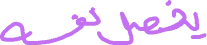 يخصل نفسه